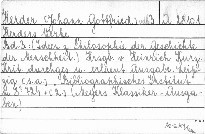 Herder (Johann Gottfried) v. B 28401
Herders Werke
Bd. 3. (Ideen z. Philosophie der Geschichte
der Menschheit). Hrsgb. v. Heinrich Kurz.
Kritt. durchges. u. erläut. Ausgabe. Leip-
zig (s.a.), Bibliographisches Institut
8. S. + (2.) (Meyers Klassiker-Ausga-
ben)